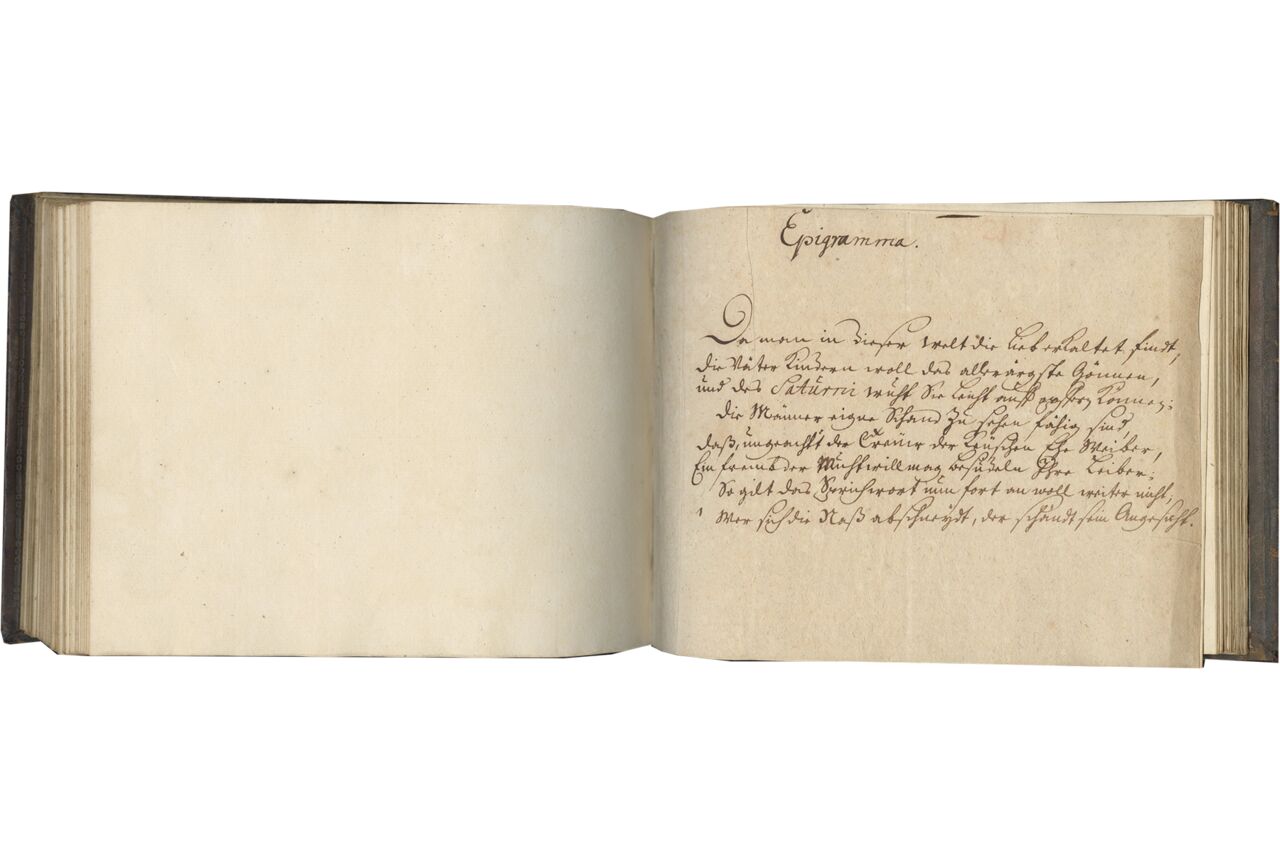 Epigramma.
Da man in dieser Welt die Lieb erkaltet findt,
die Väter Kindern woll das allerärgste Gönnen,
und des Saturni wuht Sie leicht auff Können;
die Männer eigne Schand Zu sehen fähig sind
daß, ungeacht't der Treüw der Keüschen Ehe Weiber,
Ein frembder Muhtwill mag besudeln Ihre Leiber;
So gilt das Sprichwort nun fort an woll weiter nicht,
Wer sich die Naß abschneydt, der schändt sein Angesicht.